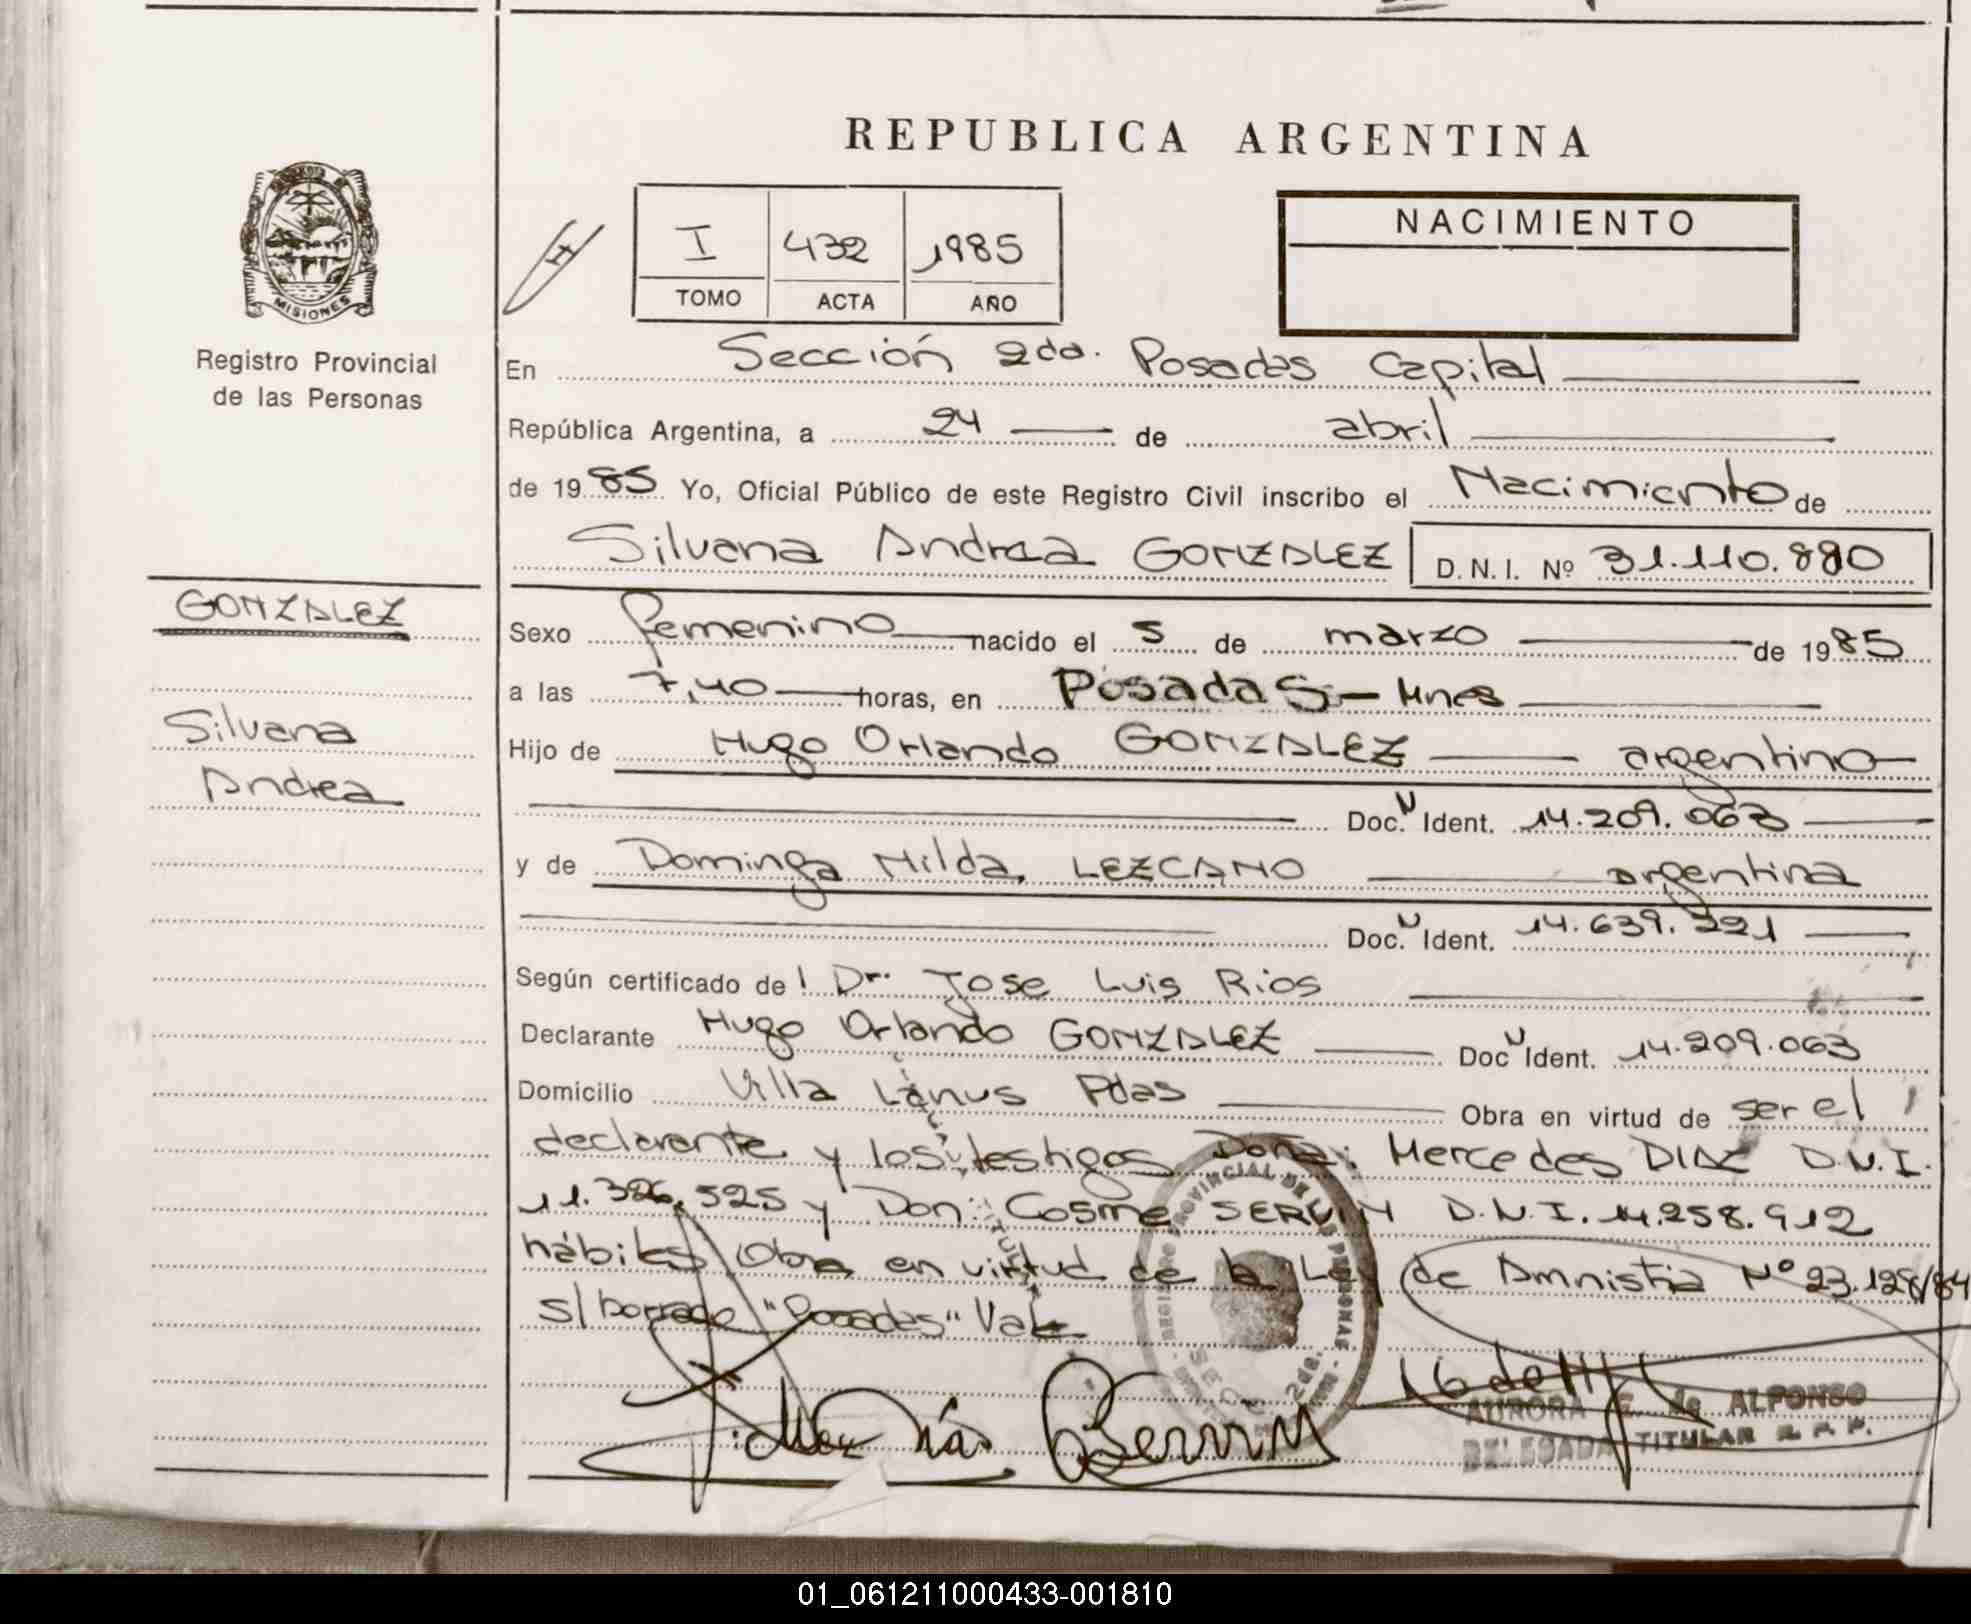 REPUBLICA ARGENTINA
MISIONES
Registro Provincial
de las Personas
I 432 1985
TOMO ACTA AÑO
NACIMIENTO
En Sección 2da. Posadas Capital
República Argentina, a 24 de abril
de 1985 Yo, Oficial Público de este Registro Civil inscribo el Nacimiento de
Silvana Andrea GONZALEZ D.N.I. Nº 31.110.880
GONZALEZ
Silvana
Andrea
Sexo femenino nacido el 5 de marzo de 1985
a las 7,40 horas, en Posadas - Mnes
Hijo de Hugo Orlando GONZALEZ argentino
Doc. Ident. 14.209.063
y de Dominga Nilda LEZCANO argentina
Doc. Ident. 14.639.221
Según certificado del Dr. Jose Luis Rios
Declarante Hugo Orlando GONZALEZ Doc Ident. 14.209.063
Domicilio Villa Lanus Pdas Obra en virtud de ser el
declarante y los testigos Doña: Mercedes DIAZ D.N.I.
11.326.525 y Don: Cosme SERVIN D.N.I. 14.258.912
hábiles Obra en virtud de la Ley de Amnistia Nº 23.128/84
s/borrado "Posadas" Vale
REGISTRO PROVINCIAL DE LAS PERSONAS
16 de
AURORA E. de ALFONSO
DELEGADA TITULAR R. P. P.
01_061211000433-001810